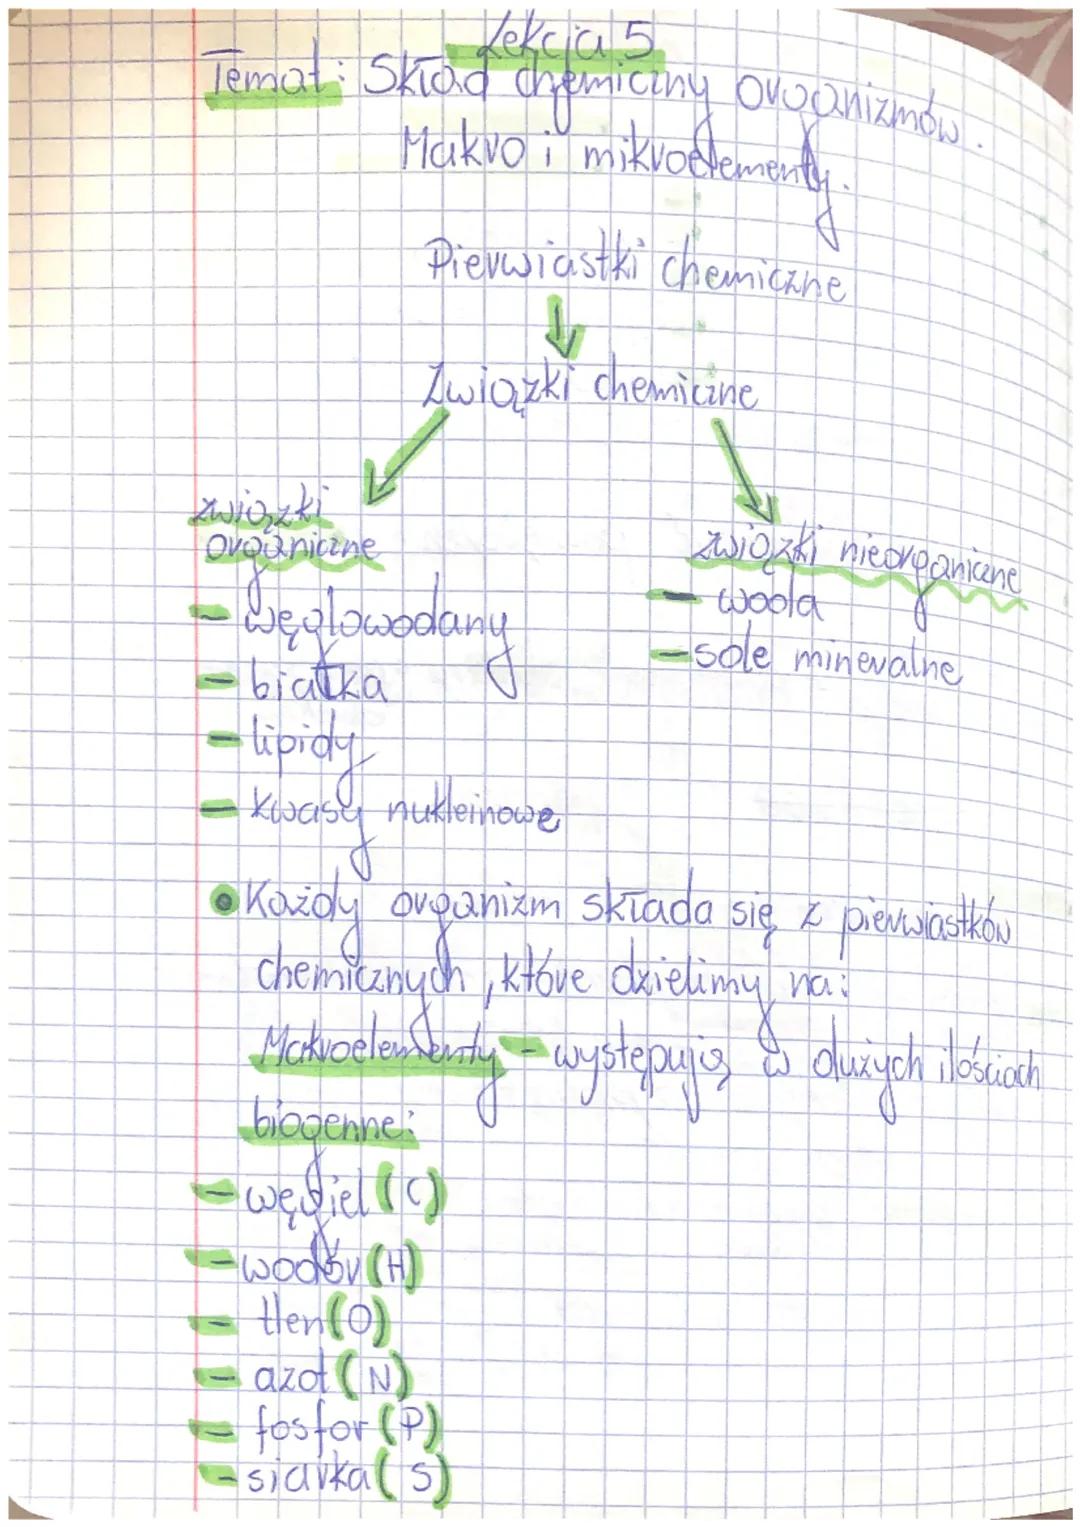 Lekcja 5
Temat: Skład chemiczny organizmów.
Makro i mikroelementy.
Pierwiastki chemiczne
Związki chemiczne
związki
organiczne
- węglowodany
- białka
- lipidy
- kwasy nukleinowe
związki nieorganiczne
- woda
- sole mineralne
• Każdy organizm składa się z pierwiastków
chemicznych, które dzielimy na:
Makroelementy - występują w dużych ilościach
biogenne:
- węgiel (C)
- wodór (H)
- tlen (O)
- azot (N)
- fosfor (P)
- siarka (S)